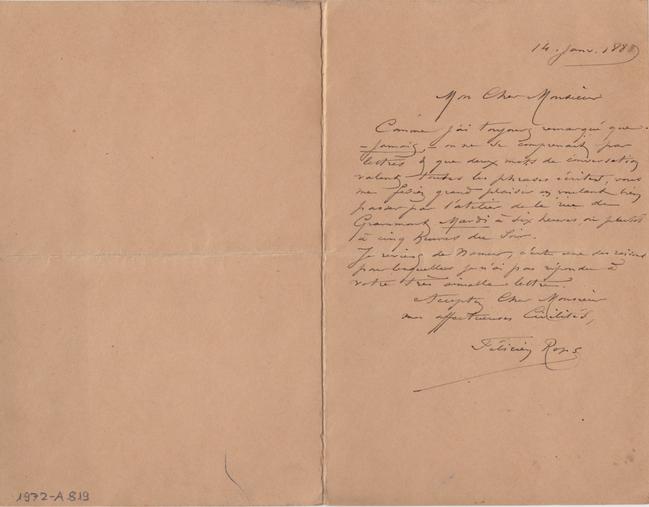 14. Janv. 188
Mon Cher Monsieur
Comme j'ai toujours remarqué que
- jamais, - on ne se comprenait par
lettres & que deux mots de conversation
valent toutes les phrases écrites, vous
me feriez grand plaisir en voulant bien
passer par l'atelier de la rue de
Grammont Mardi à six heures, ou plutôt
à cinq heures du soir.
Je reviens de Namur, c'est une des raisons
pour lesquelles je n'ai pas répondu à
votre très aimable lettre.
Acceptez Cher Monsieur
mes affectueuses Civilités,
Félicien Rops
1972-A.819